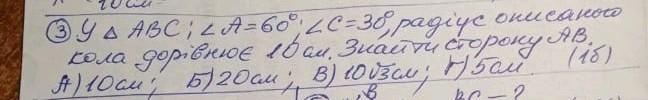 ③ У △ ABC; ∠A=60°; ∠C=30°, радіус описаного
кола дорівнює 10 см. Знайти сторону AB.
А) 10 см; Б) 20 см; В) 10√3 см; Г) 5 см. (1б)